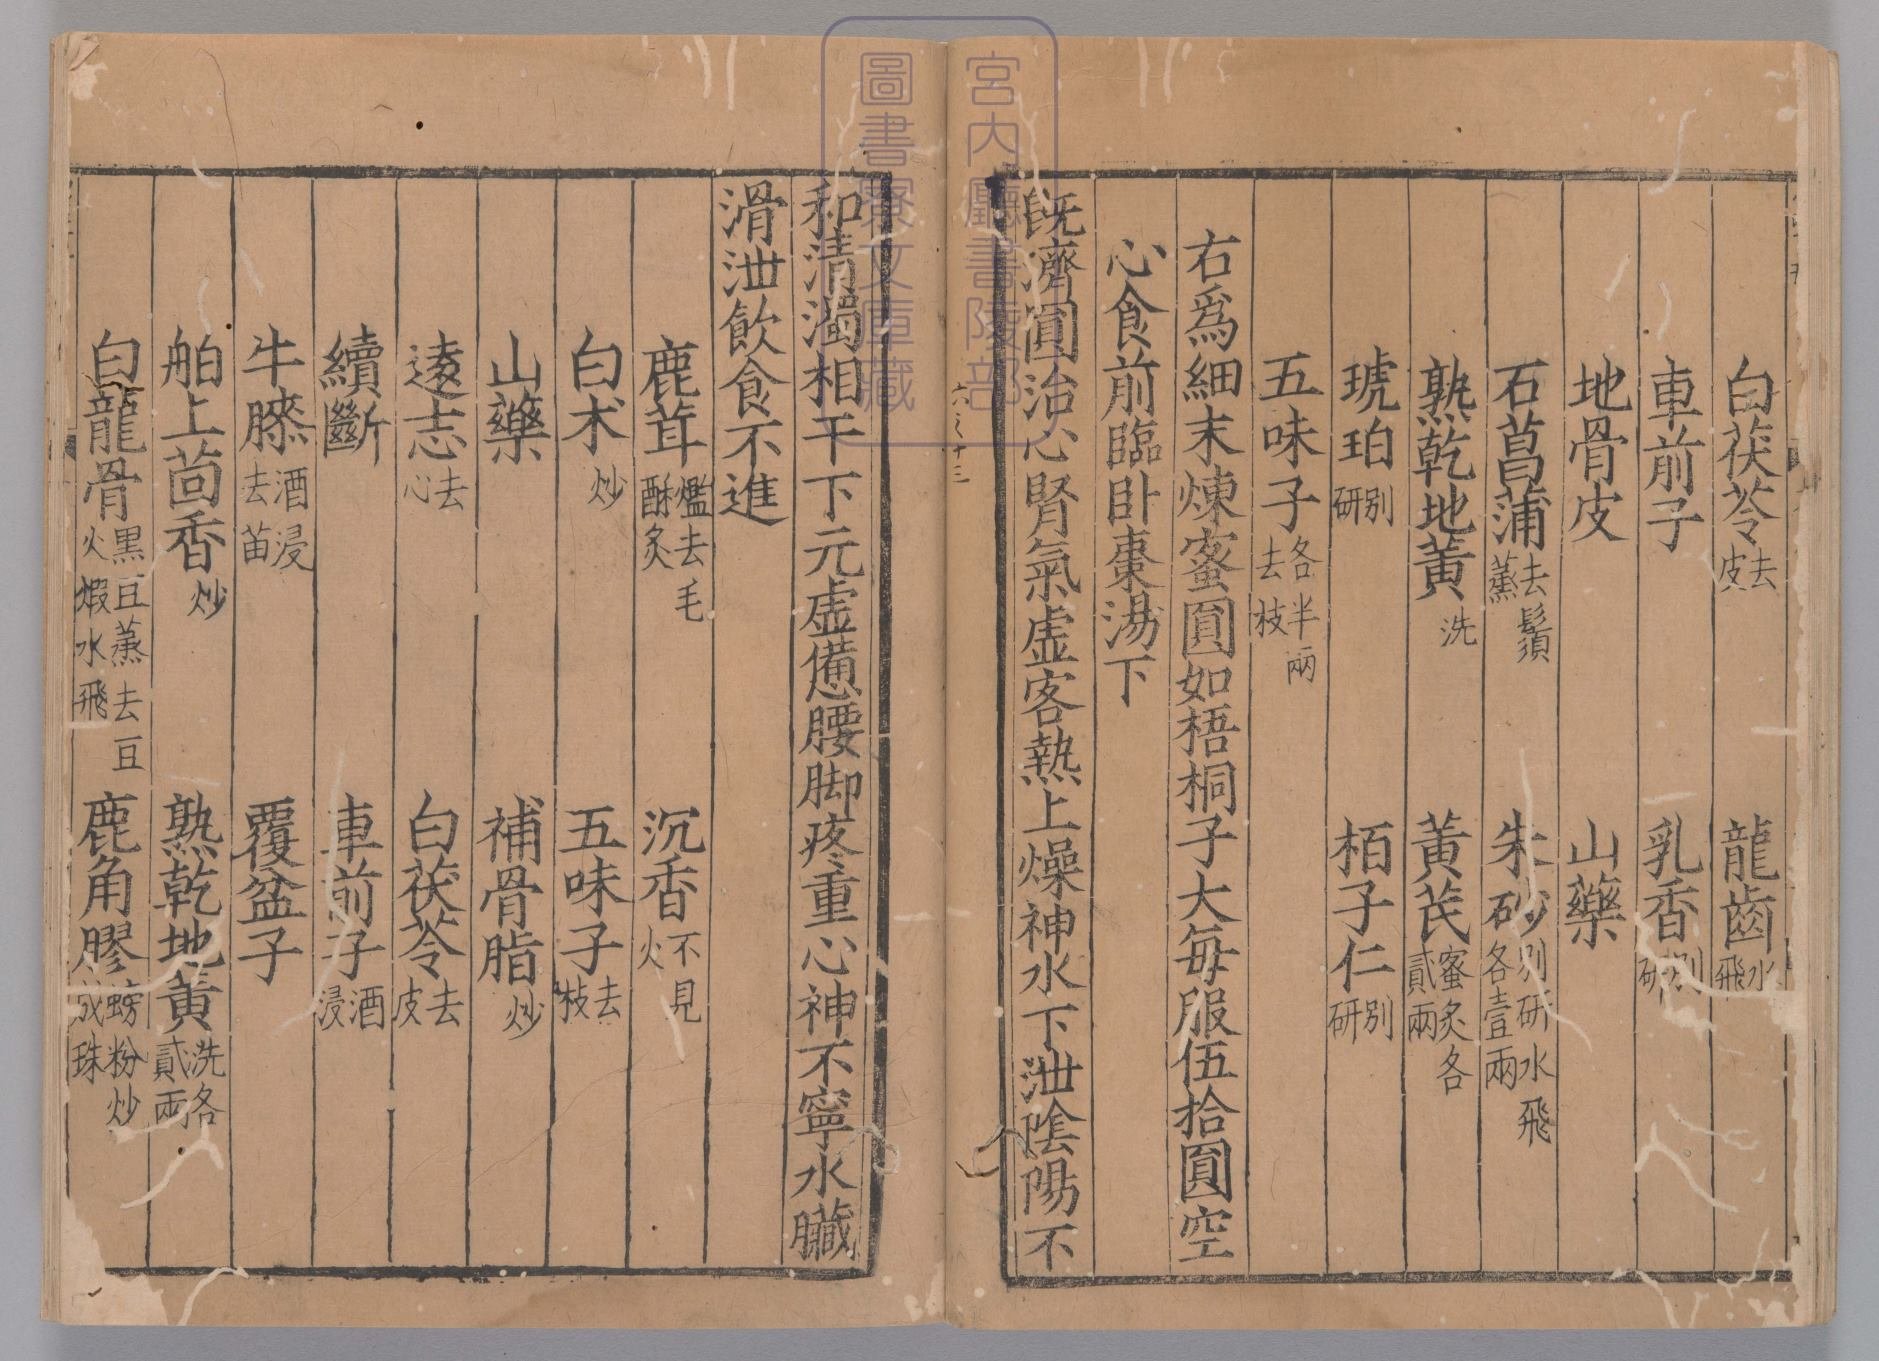 白茯苓去皮　龍齒水飛
車前子　乳香別研
地骨皮　山藥
石菖蒲去鬚蒸　朱砂別研水飛各壹兩
熟乾地黃洗　黃芪蜜炙各貳兩
琥珀別研　栢子仁別研
五味子各半兩去枝
右爲細末煉蜜圓如梧桐子大每服伍拾圓空
心食前臨卧棗湯下
既濟圓治心腎氣虛客熱上燥神水下泄陰陽不
和清濁相干下元虛憊腰脚疼重心神不寧水臟
滑泄飲食不進
鹿茸爁去毛酥炙　沉香不見火
白术炒　五味子去枝
山藥　補骨脂炒
遠志去心　白茯苓去皮
續斷　車前子酒浸
牛膝酒浸去苗　覆盆子
舶上茴香炒　熟乾地黃洗各貳兩
白龍骨黑豆蒸去豆火煅水飛　鹿角膠蚌粉炒成珠
宮内廳書陵部
圖書寮文庫藏
六之十三